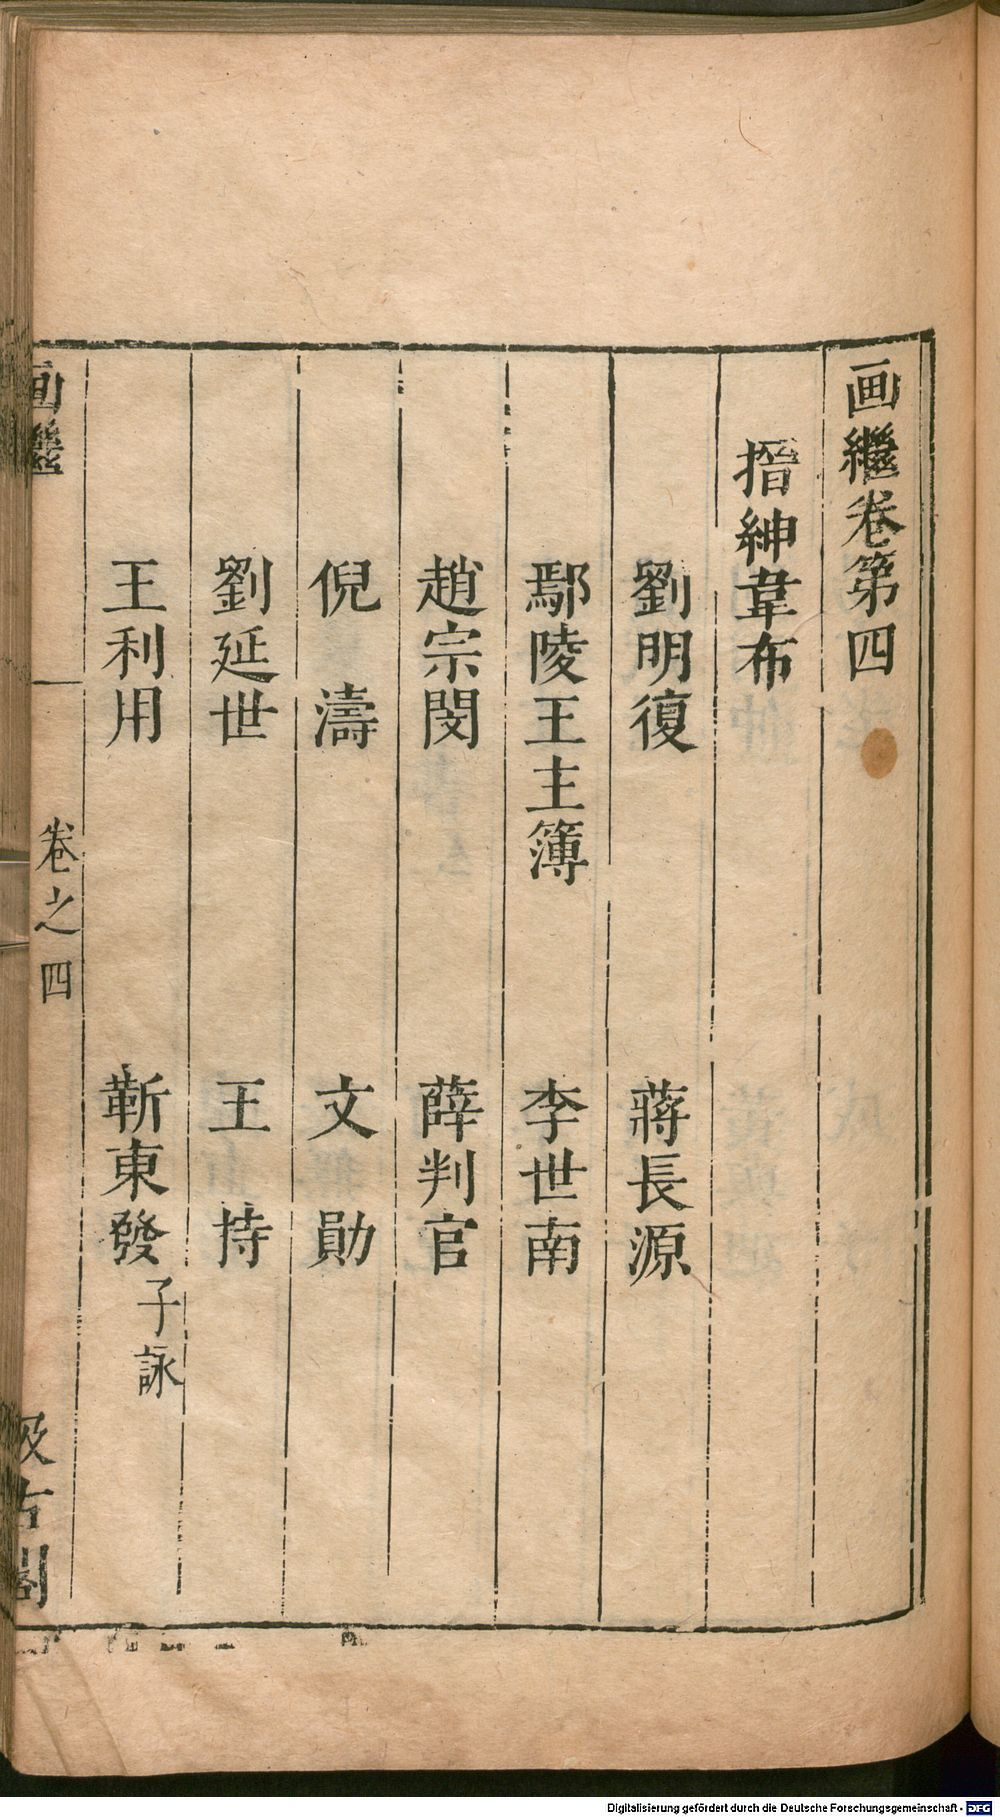 画繼卷第四
搢紳韋布
劉明復 蔣長源
鄢陵王主簿 李世南
趙宗閔 薛判官
倪濤 文勛
劉延世 王持
王利用 靳東發 子詠
画繼 卷之四 汲古閣
Digitalisierung gefördert durch die Deutsche Forschungsgemeinschaft - DFG